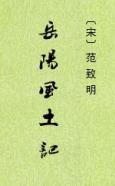 〔宋〕范致明
岳陽風土記